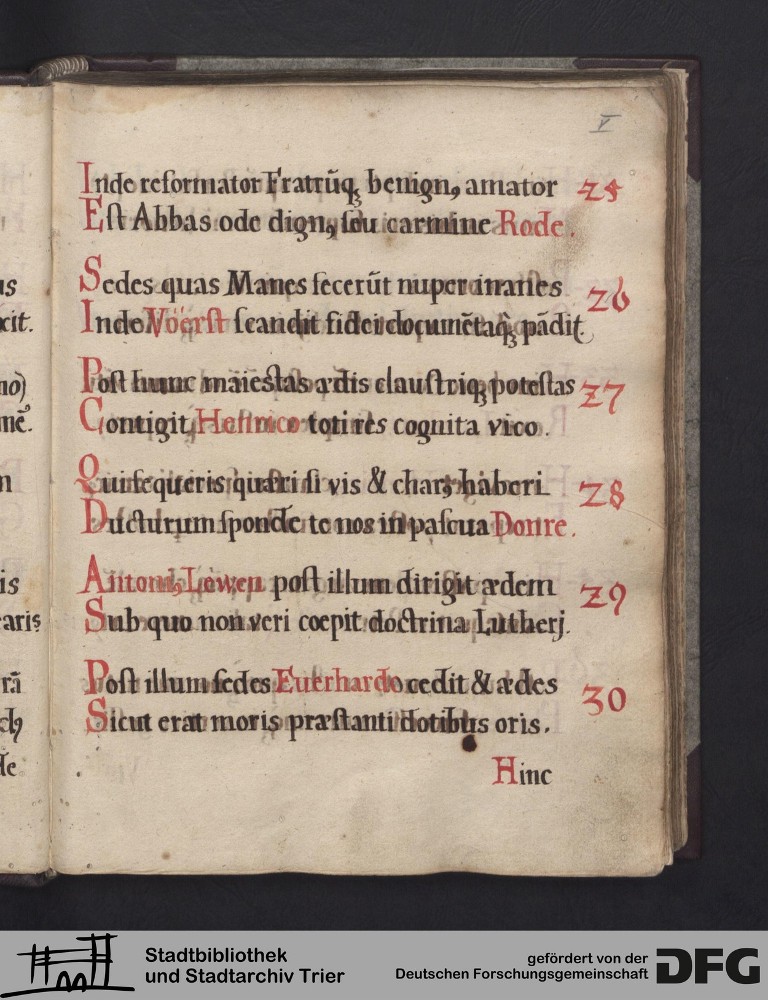 V
Inde reformator Fratrūq₃ benignꝰ amator 25
Est Abbas ode dignꝰ seu carmine Rode.
Sedes quas Manes fecerūt nuper inanes 26
Inde Vöerst scandit fidei documētaq₃ pādit
Post hunc maiestas ædis claustriq₃ potestas 27
Contigit Henrico toti res cognita vico.
Qui sequeris quæri si vis & charꝰ haberi 28
Ducturum sponde te nos in pascua Donre.
Antoniꝰ Lewen post illum dirigit ædem 29
Sub quo non veri cœpit doctrina Lutherj.
Post illum sedes Euerhardo cedit & ædes 30
Sicut erat moris præstanti dotibus oris.
Hinc
us
xit.
no)
mē.
m
is
earis
rā
de
Stadtbibliothek
und Stadtarchiv Trier
gefördert von der
Deutschen Forschungsgemeinschaft
DFG